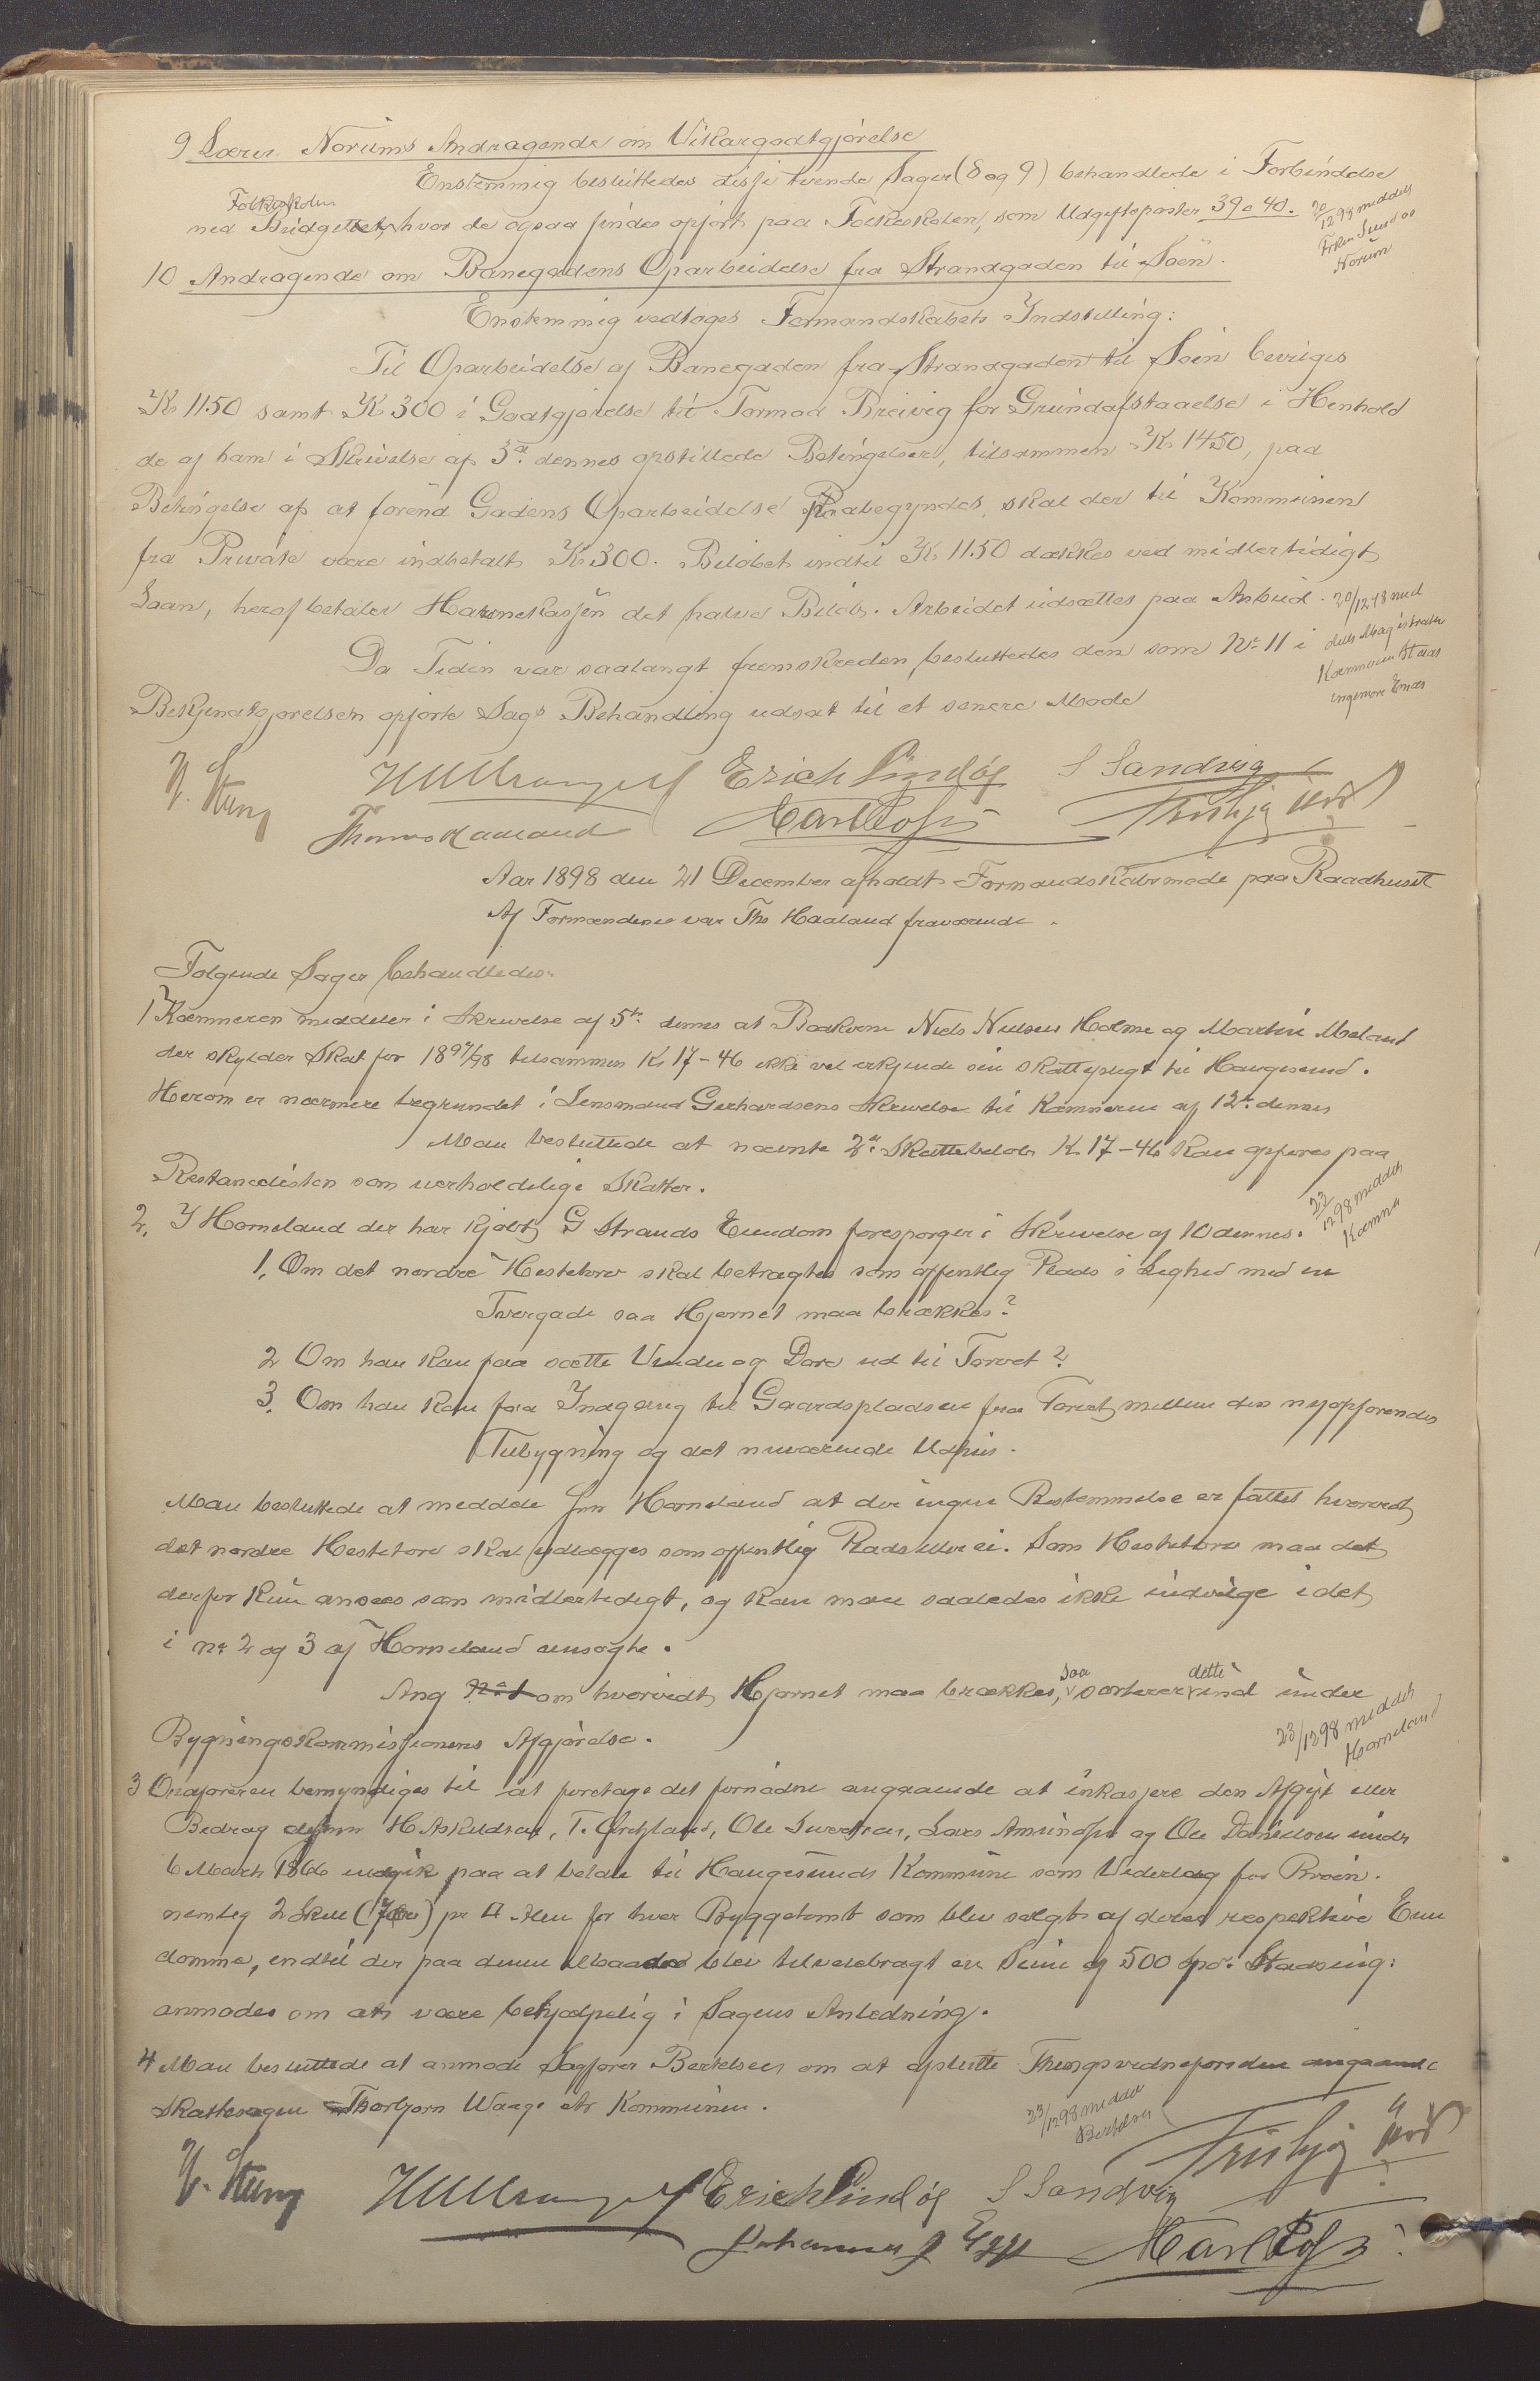 9 Lærer Norums Andragende om Vikargodtgjørelse
Enstemmig besluttedes disse tvende Sager (8 og 9) behandlede i Forbindelse
Folkeskolen
med Budgettet, hvor de ogsaa findes opført paa Folkeskolen, som Udgiftsposter 39 o 40.
20/12 98 meddelt
Frken Sund os
Norum
10 Andragende om Banegadens Oparbeidelse fra Strandgaden til Søen.
Enstemmig vedtoges Formandskabets Indstilling:
Til Oparbeidelse af Banegaden fra Strandgaden til Søen beviges
Kr 1150 samt Kr 300 i Godtgjørelse til Tormod Breivig for Grundafstaaelse i Henhold
de af ham i Skrivelse af 3die dennes opstillede Betingelser, tilsammen Kr 1450, paa
Betingelse af at førend Gadens Oparbeidelse paabegyndes, skal der til Kommunen
fra Private være indbetalt Kr 300. Beløbet indtil Kr 1150 dækkes ved midlertidigt
Laan, heraf betaler Havnekassen det halve Beløb. Arbeidet udsættes paa Anbud.
20/12 98 med
delt Magistraten
Kæmneren Stads
ingeniøren
Da Tiden var saalangt fremskreden, besluttedes den som No 11 i
Bekjendtgjørelsen opførte Sags Behandling udsat til et senere Møde
Erich Lindøe S Sandvig
Thomas Haaland
Aar 1898 den 21 December afholdt Formandskabsmøde paa Raadhuset
Af Formændene var Ths Haaland fraværende.
Følgende Sager behandledes.
1 Kæmneren meddeler i Skrivelse af 5te dennes at Baakverne Niels Nielsen Holme og Martin Meland
der skylder Skat for 1897/98 tilsammen Kr 17-46 ikke vel erkjende sin Skattepligt til Haugesund.
Herom er nærmere begrundet i Lensmand Gerhardsens Skrivelse til Kæmneren af 12te dennes
Man besluttede at nævnte 2de Skattebeløb Kr 17-46 kan opføres paa
Restancelisten som uerholdelige Skatter.
22/12 98 meddelt
Kæmner
2, I Horneland der har kjøbt G Strands Eiendom forespørger i Skrivelse af 10 dennes.
1, Om det nordre Hestetorv skal betragtes som offentlig Plads i Lighed med en
Tvergade saa Hjørnet maa brækkes?
2 Om han kan faa sætte Vindu og Døre ud til Torvet?
3. Om han kan faa Indgang til Gaardspladsen fra Torvet mellem den nyopførendes
Tilbygning og det nuværende Udhus.
Man besluttede at meddele Hrr Horneland at der ingen Bestemmelse er fattet hvorvidt
det nordre Hestetorv skal udlægges som offentlig Plads eller ei. Som Hestetorv maa det
derfor kun ansees som midlertidigt, og kan man saaledes ikke indvilge i det
i No 2 og 3 af Horneland ansøgte.
Ang No 1 om hvorvidt Hjørnet maa brækkes, saa sorterer dette ind under
Bygningskommissionens Afgjørelse.
23/12 98 meddelt
Horneland
3 Ordføreren bemyndiges til at foretage det fornødne angaaende at inkassere den Afgift eller
Bedrag H Askildsen, T. , Ole Sivertsen, Lars Amundsen og Ole Danielsen under
6 Marts 1866 indgik paa at betale til Haugesunds Kommune som Vederlag for Broen.
nemlig 2 Skill (7 Øre) pr □ Alen for hver Byggetomt som blev solgt af deres respektive Eien
domme, indtil der paa denne Maade blev tilveiebragt en Sum af 500 Spd. Stadsing:
anmodes om at være behjælpelig i Sagens Anledning.
4 Man besluttede at anmode Sagfører Bertelsen om at afslutte Thingsvidneførslen angaaende
Skattesagen Thorbjørn Waage ctr Kommunen.
23/12 98 meddelt
Bertelsen
Erich Lindøe S Sandvig